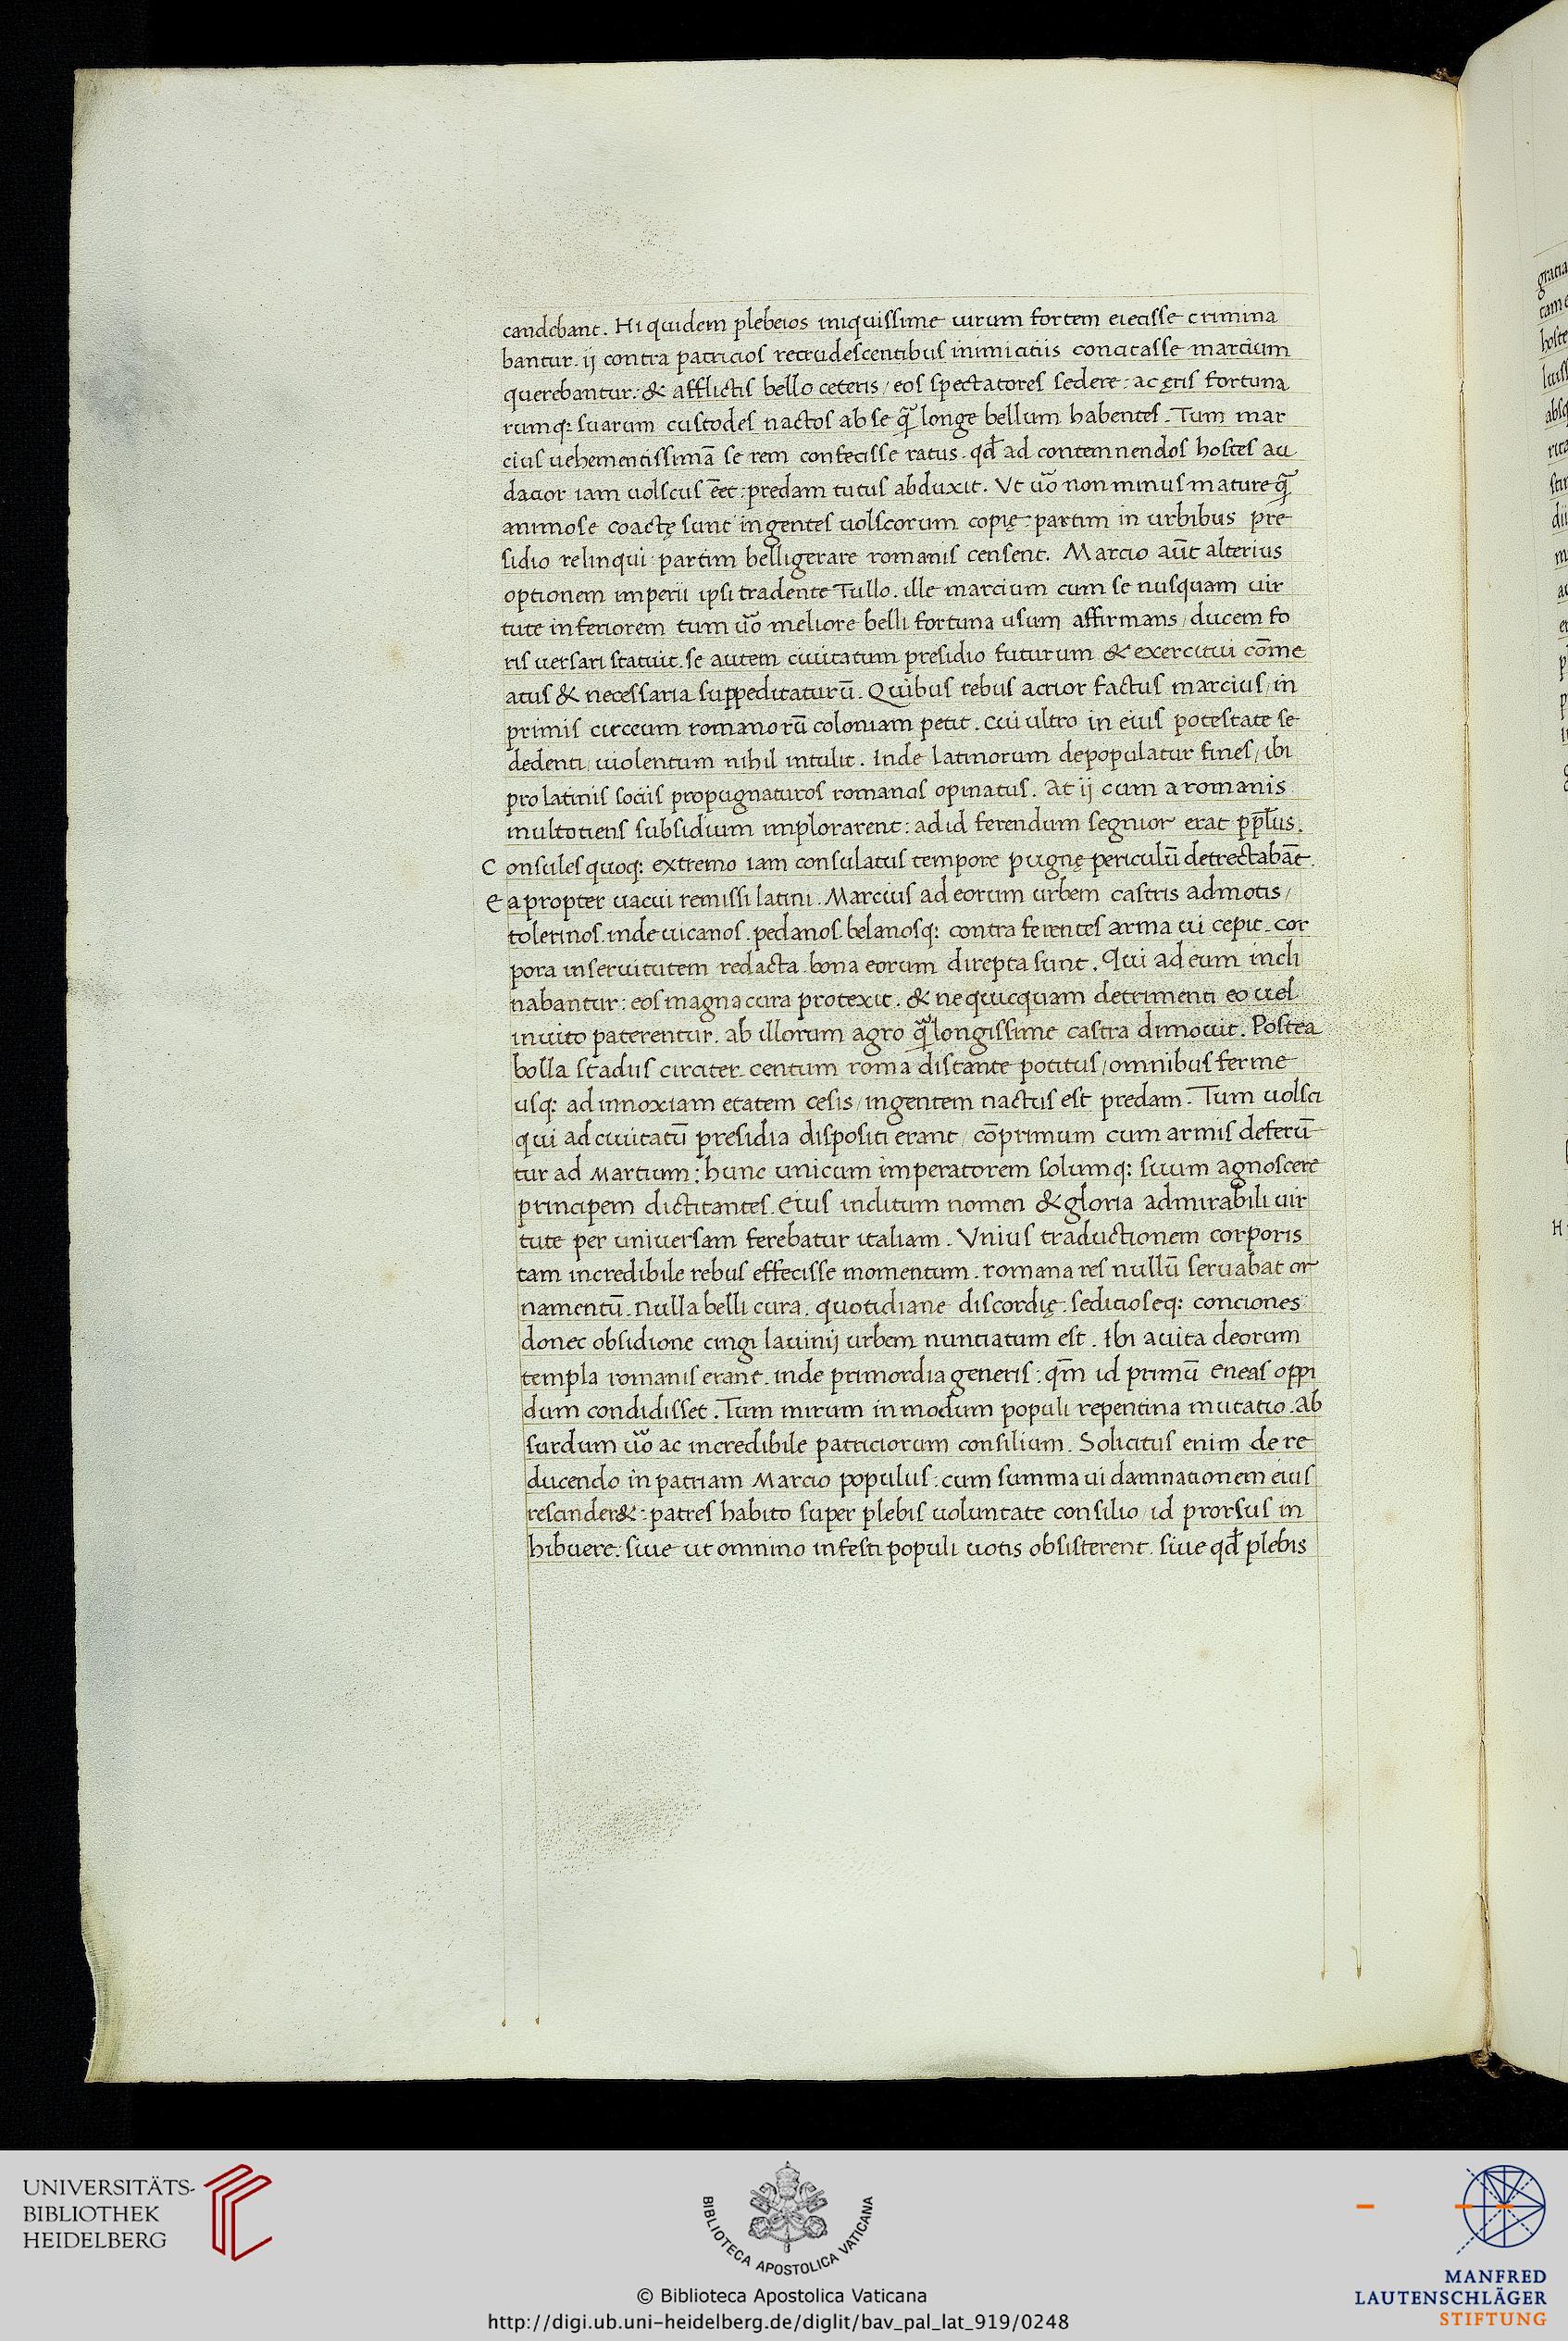 candebant. Hi quidem plebeios iniquissime uirum fortem eiecisse crimina
bantur. ij contra patricios recrudescentibus inimicitiis concitasse marcium
querebantur: & afflictis bello ceteris / eos spectatores sedere: ac ęris fortuna
rumq: suarum custodes nactos ab se q̃ longe bellum habentes. Tum mar
cius uehementissimã se rem confecisse ratus. qđ ad contemnendos hostes au
dacior iam uolscus eẽt: predam tutus abduxit. Vt uõ non minus mature q̃
animose coactę sunt ingentes uolscorum copię: partim in urbibus pre
sidio relinqui: partim belligerare romanis censent. Marcio aũt alterius
optionem imperii ipsi tradente Tullo. ille marcium cum se nusquam uir
tute inferiorem tum uõ meliore belli fortuna usum affirmans / ducem fo
ris uersari statuit. se autem ciuitatum presidio futurum & exercitui cõme
atus & necessaria suppeditaturũ. Quibus rebus acrior factus marcius / in
primis circeum romanorũ coloniam petit. cui ultro in eius potestate se
dedenti / uiolentum nihil intulit. Inde latinorum depopulatur fines / ibi
pro latinis sociis propugnaturos romanos opinatus. At ij cum a romanis
multotiens subsidium implorarent: ad id ferendum segnior erat pp̃lus.
Consules quoq: extremo iam consulatus tempore pugnę periculũ detrectabãt.
Ea propter uacui remissi latini. Marcius ad eorum urbem castris admotis /
tolerinos. inde uicanos. pedanos. belanosq: contra ferentes arma ui cepit. cor
pora in seruitutem redacta. bona eorum direpta sunt. Qui ad eum incli
nabantur: eos magna cura protexit. & ne quicquam detrimenti eo uel
inuito paterentur. ab illorum agro q̃ longissime castra dimouit. Postea
bolla stadiis circiter centum roma distante potitus / omnibus ferme
usq: ad innoxiam etatem cesis / ingentem nactus est predam. Tum uolsci
qui ad ciuitatũ presidia dispositi erant / cõprimum cum armis deferũ
tur ad Martium: hunc unicum imperatorem solumq: suum agnoscere
principem dictitantes. Eius inclitum nomen & gloria admirabili uir
tute per uniuersam ferebatur italiam. Vnius traductionem corporis
tam incredibile rebus effecisse momentum. romana res nullũ seruabat or
namentũ. nulla belli cura. quotidiane discordię. seditioseq: conciones
donec obsidione cingi lauinij urbem nunciatum est. Ibi auita deorum
templa romanis erant. inde primordia generis: qm̃ id primũ Eneas oppi
dum condidisset. Tum mirum in modum populi repentina mutatio. ab
surdum uõ ac incredibile patriciorum consilium. Solicitus enim de re
ducendo in patriam Marcio populus: cum summa ui damnationem eius
rescinder&: patres habito super plebis uoluntate consilio / id prorsus in
hibuere: siue ut omnino infesti populi uotis obsisterent. siue qđ plebis
UNIVERSITÄTS-
BIBLIOTHEK
HEIDELBERG
BIBLIOTECA APOSTOLICA VATICANA
© Biblioteca Apostolica Vaticana
http://digi.ub.uni-heidelberg.de/diglit/bav_pal_lat_919/0248
MANFRED
LAUTENSCHLÄGER
STIFTUNG